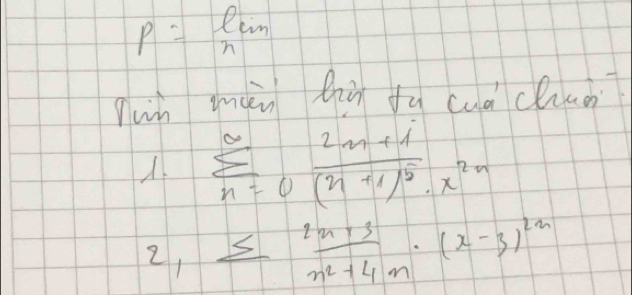 P = lim
n
Tìm miền hội tụ của chuỗi
1. ∞ ∑ n=0 (2n+1)/(n+1)^5 . x^2n
2, ∑ (2n+3)/(n^2+4n) . (x-3)^2n